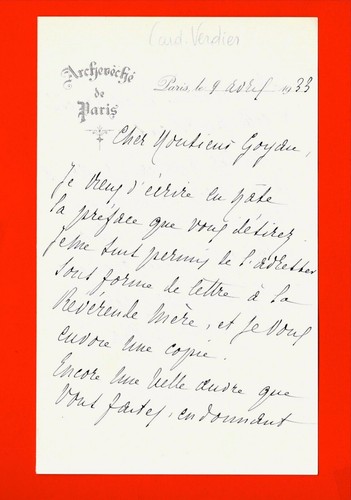 Card. Verdier
Archevêché
de
Paris
Paris, le 9 avril 1933
Cher Monsieur Goyau,
Je viens d'écrire en hâte
la préface que vous désirez.
Je me suis permis de l'adresser
sous forme de lettre à la
Révérende Mère, et je vous
envoie une copie.
Encore une belle œuvre que
vous faites, en donnant